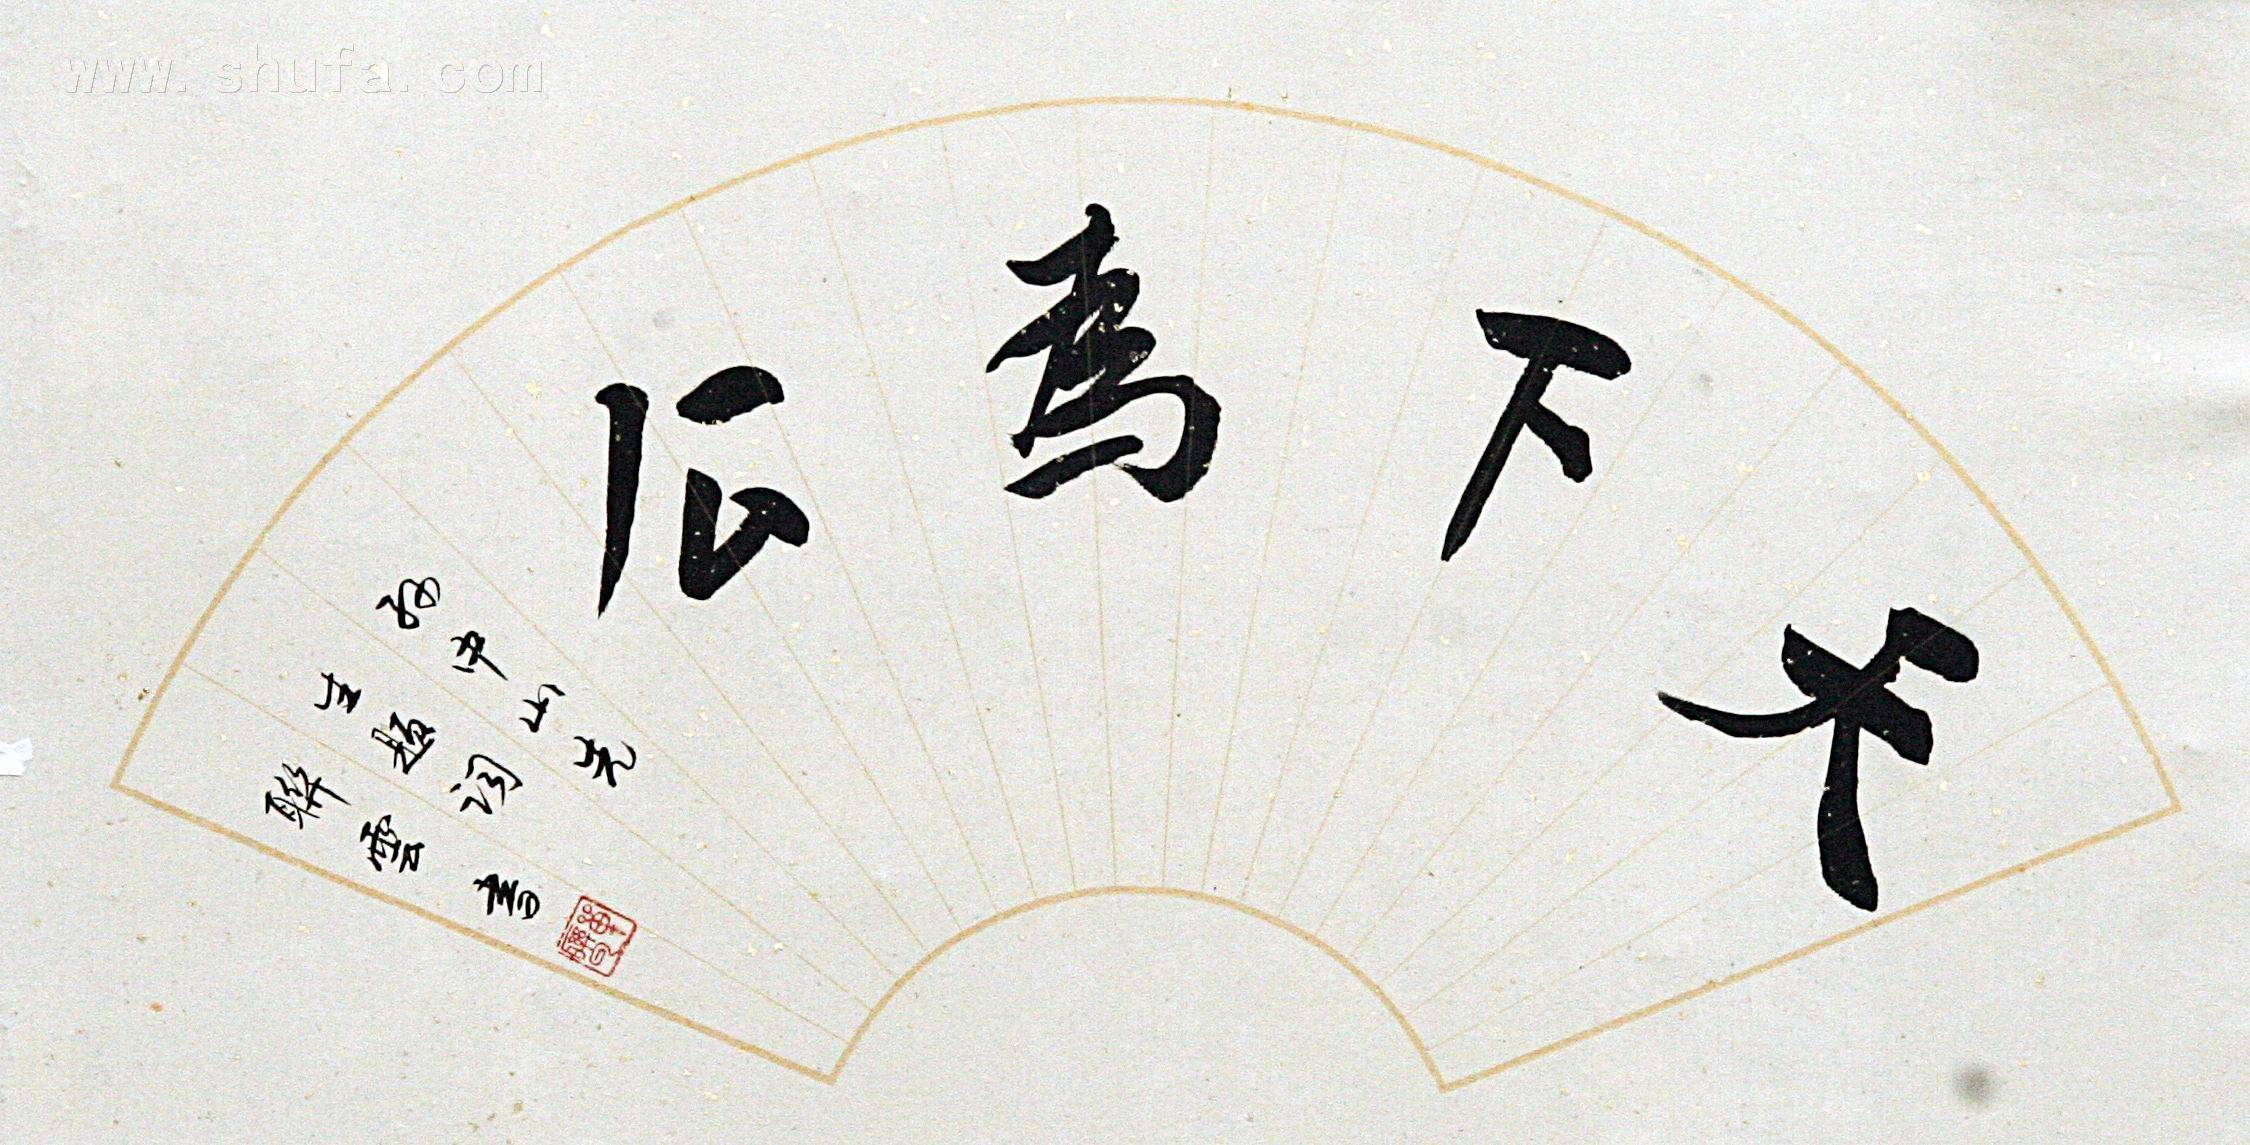 www.shufa.com
天下為公
孙中山先
生题词
聯雲書